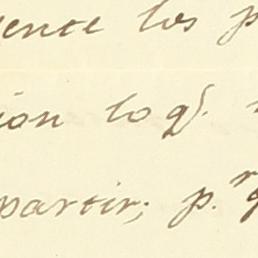 ence los p
ion lo qͤ.
partir; p.ʳ q